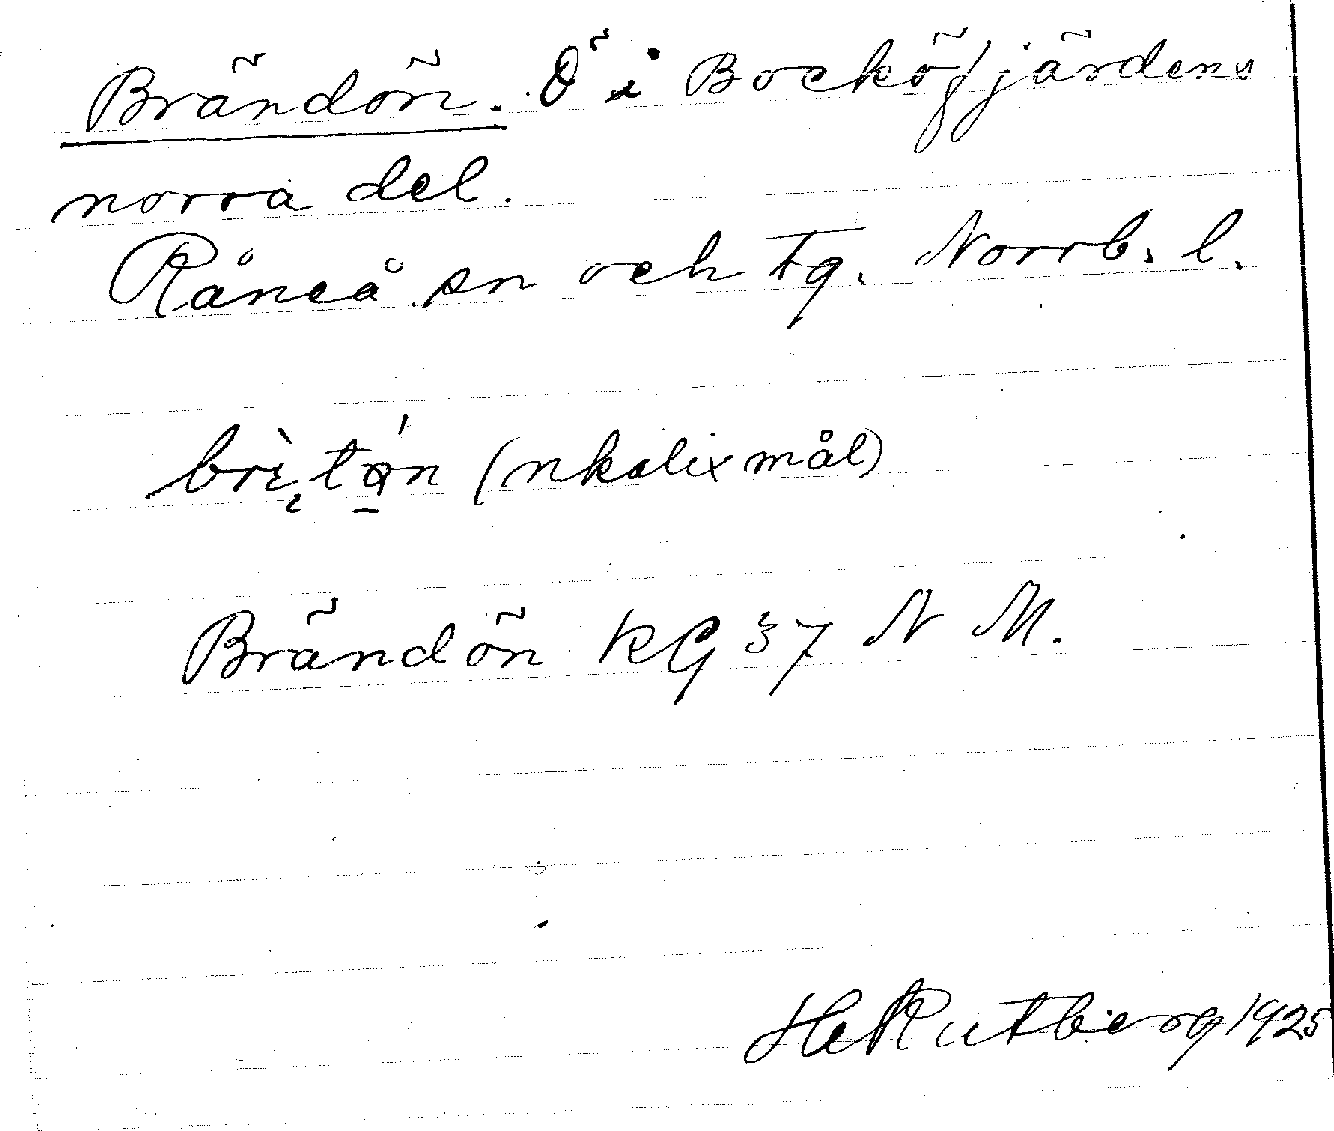 Brändön. Ö i Bocköfjärdens
norra del.
Råneå sn och tg. Norrb. l.
(nkalixmål)
Brändön RG 37 N M.
HRutberg 1925